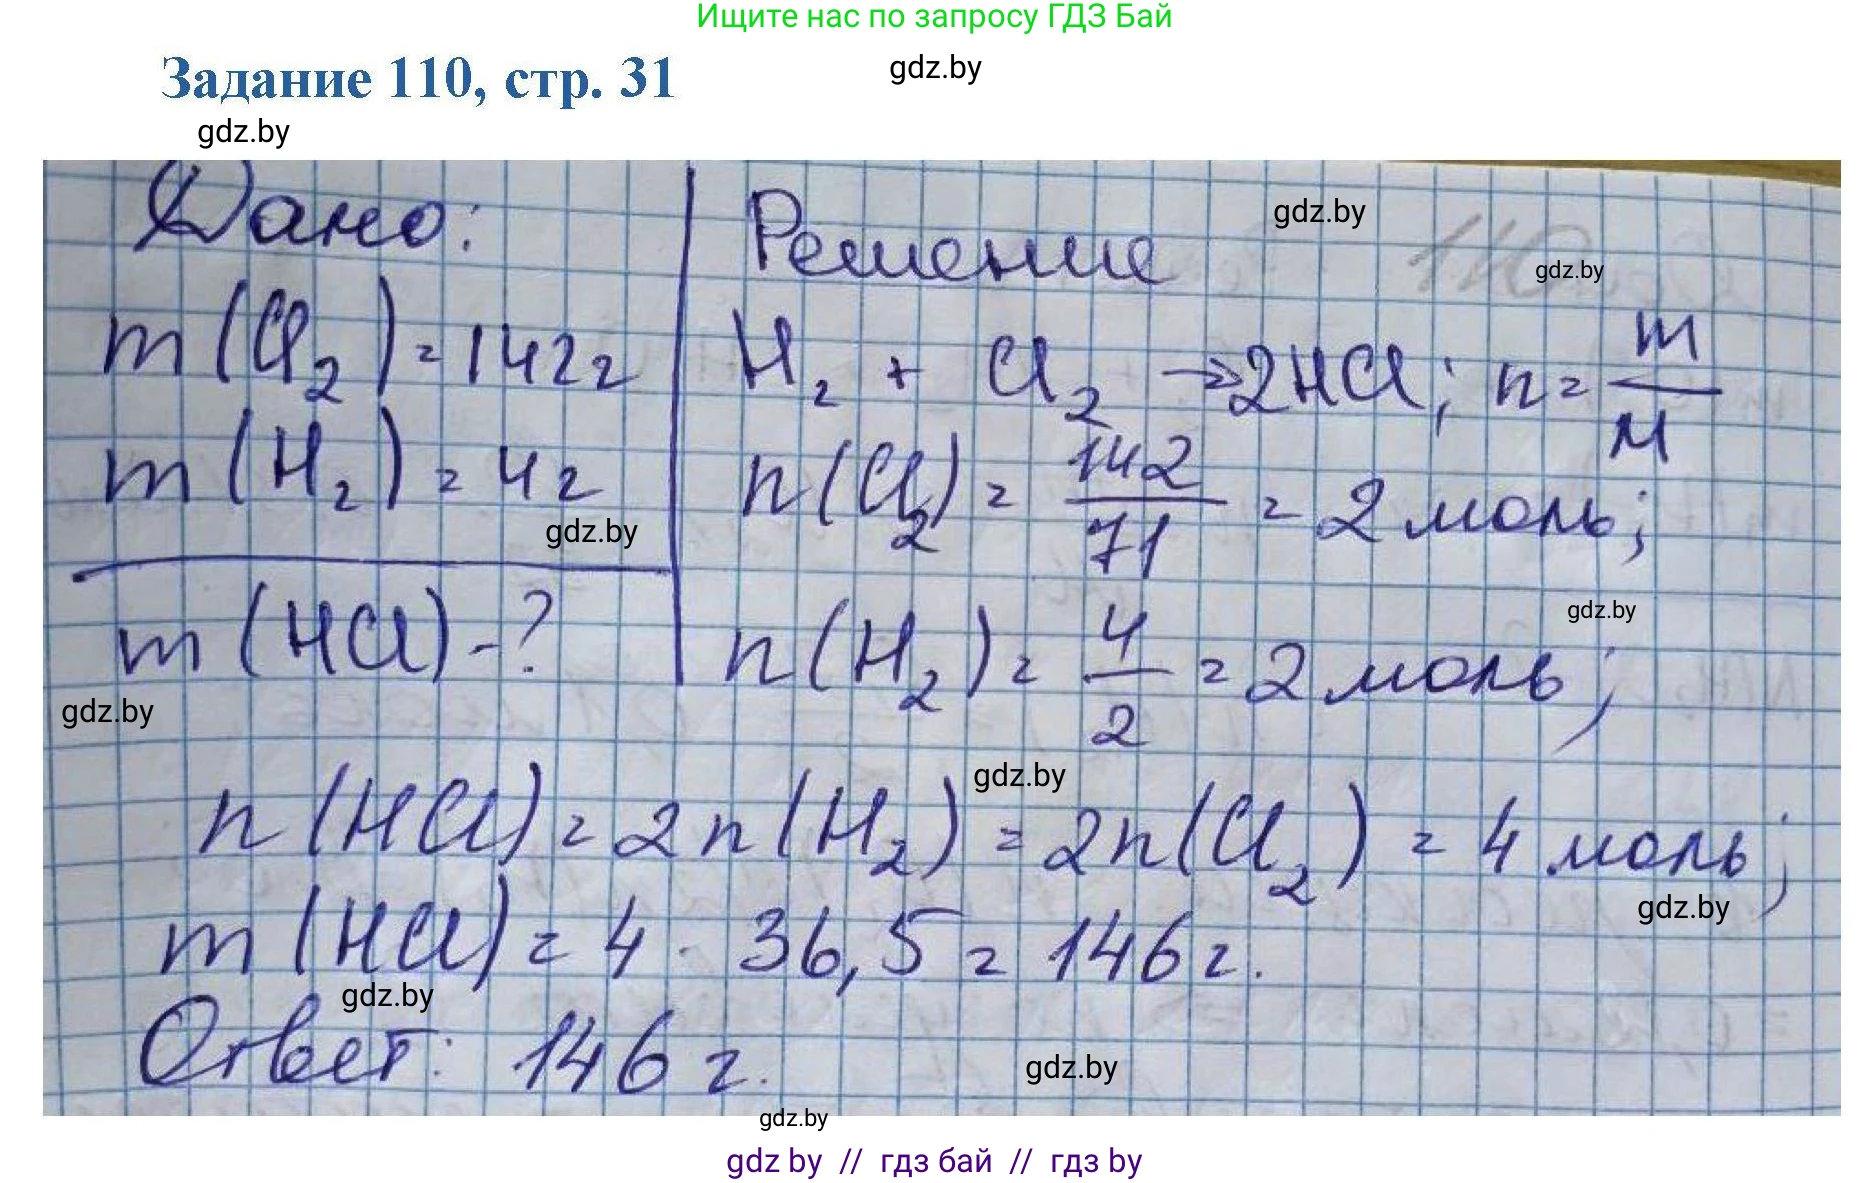 Ищите нас по запросу ГДЗ Бай
Задание 110, стр. 31
gdz.by
gdz.by
Дано:
m(Cl₂) = 142г
m(H₂) = 4г
gdz.by
m(HCl) - ?
gdz.by
Решение
gdz.by
110
gdz.by
H₂ + Cl₂ → 2HCl; n = m/M
n(Cl₂) = 142/71 = 2 моль;
gdz.by
n(H₂) = 4/2 = 2 моль;
gdz.by
n(HCl) = 2n(H₂) = 2n(Cl₂) = 4 моль;
gdz.by
m(HCl) = 4 · 36,5 = 146 г.
gdz.by
Ответ: 146 г.
gdz.by
gdz.by
gdz by // гдз бай // гдз by